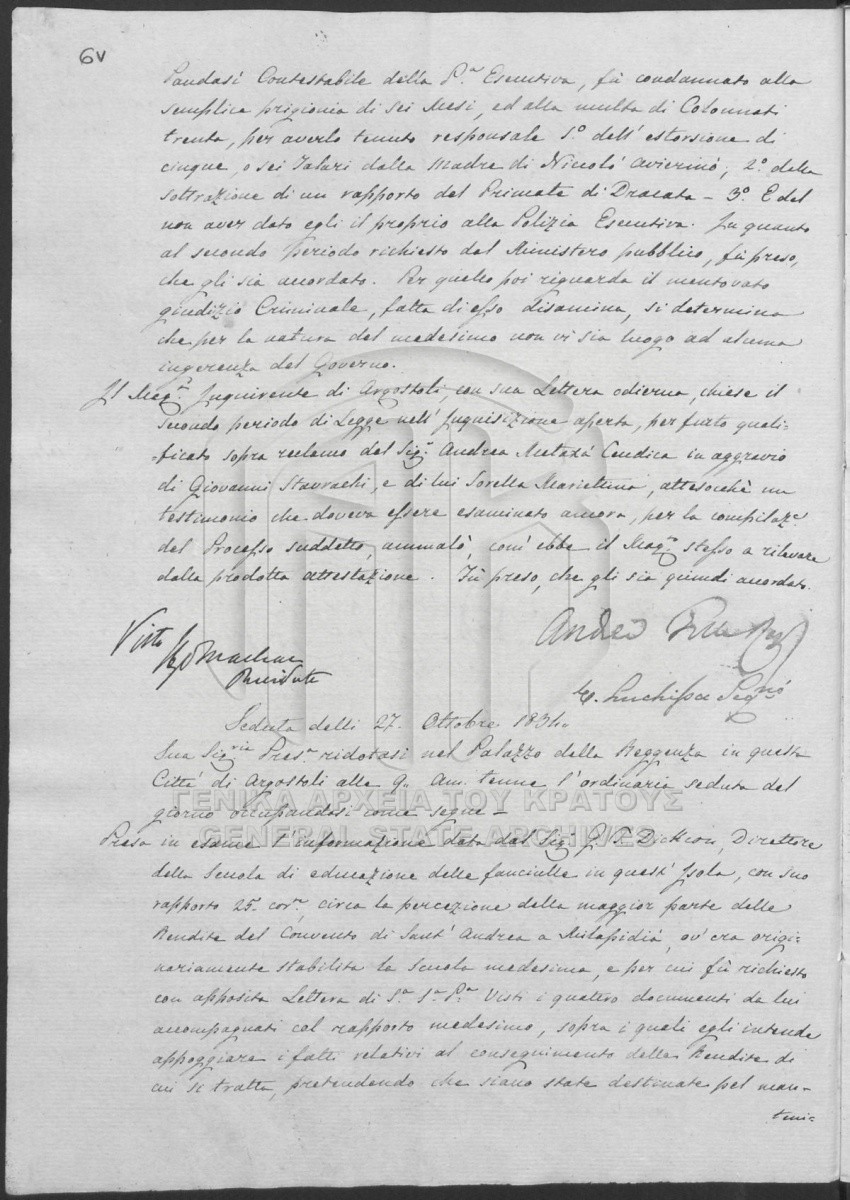 6v
Pandasi Contestabile della P.ª Esecutiva, fù condannato alla
semplice prigionia di sei Mesi, ed alla multa di Colonnati
trenta, per averlo tenuto responsale 1º dell' estorsione di
cinque, o sei Talari dalla Madre di Nicolò Avierinò; 2º della
sottrazione di un rapporto del Primate di Dracata – 3º E del
non aver dato egli il proprio alla Polizia Esecutiva. In quanto
al secondo periodo richiesto dal Ministero pubblico, fù preso,
che gli sia accordato. Per quello poi riguarda il mentovato
giudizio Criminale, fatta di esso disamina, si determina
che per la natura del medesimo non vi sia luogo ad alcuna
ingerenza del Governo.
Il Mag.º Inquirente di Argostoli, con sua Lettera odierna, chiese il
secondo periodo di Legge nell' Inquisizione aperta, per furto quali-
ficato sopra reclamo del Sig.r Andrea Metaxà Cendica in aggravio
di Giovanni Stavrachi, e di lui Sorella Mariettina, attesochè un
testimonio che doveva essere esaminato ancora, per la compilaz.e
del Processo suddetto, ammalò, com' ebbe il Mag.o stesso a rilevare
dalla prodotta attestazione. Fù preso, che gli sia quindi accordato.
Visto
Presidente
Andrea
Seg.rio
Seduta delli 27. Ottobre 1834.
Sua Sig.ria Pres.e ridotasi nel Palazzo della Reggenza in questa
Città di Argostoli alle 9. Am. tenne l' ordinaria seduta del
giorno occupandosi come segue –
ΓΕΝΙΚΑ ΑΡΧΕΙΑ ΤΟΥ ΚΡΑΤΟΥΣ
GENERAL STATE ARCHIVES
Presa in esame l' informazione data dal Sig.r Dickson, Direttore
della Scuola di educazione delle fanciulle in quest' Isola, con suo
rapporto 25. cor.e, circa la percezione della maggior parte delle
Rendite del Convento di Sant' Andrea a Milapidià, ov' era origi-
nariamente stabilita la Scuola medesima, e per cui fù richiesto
con apposita Lettera di S.a S.a P.a Visti i quattro documenti da lui
accompagnati col rapporto medesimo, sopra i quali egli intende
appoggiare i fatti relativi al conseguimento delle Rendite di
cui si tratta, pretendendo che siano state destinate pel man-
teni=